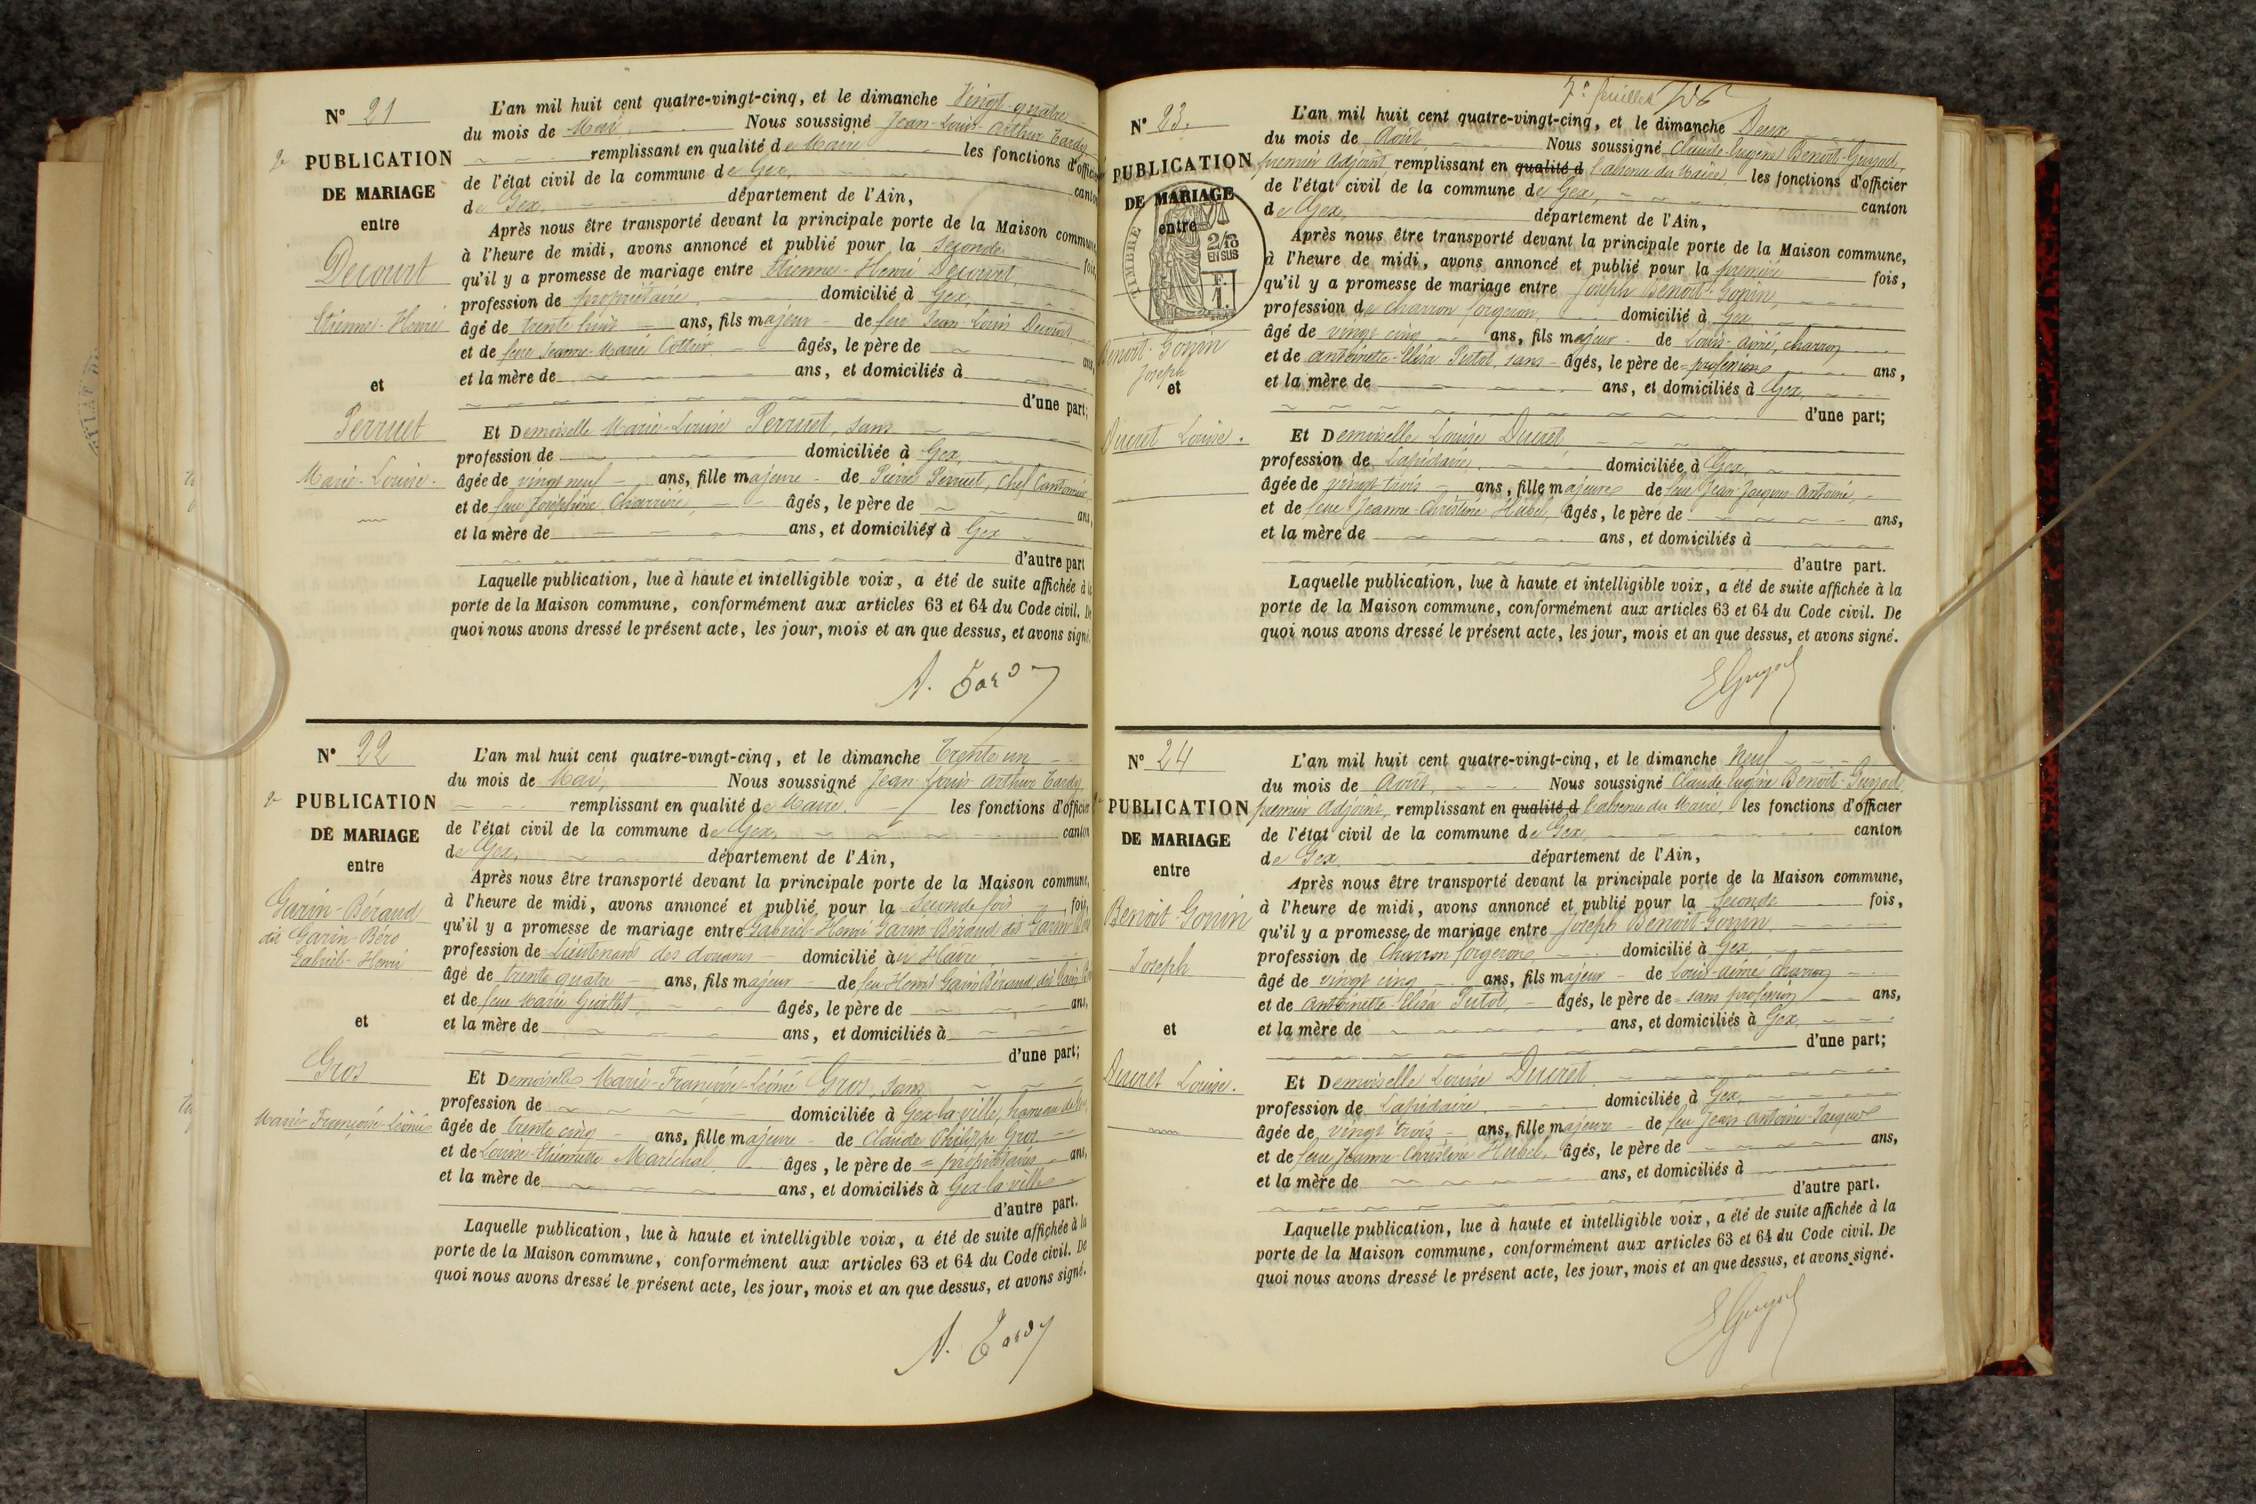 N° 21
PUBLICATION
DE MARIAGE
entre
Decourt
Etienne-Henri
et
Perruet
Marie-Louise.
L'an mil huit cent quatre-vingt-cinq, et le dimanche Vingt-quatre
du mois de Mai, Nous soussigné Jean-Louis-Arthur Tardy
remplissant en qualité de Maire les fonctions d'officier
de l'état civil de la commune de Gex, canton
de Gex, département de l'Ain,
Après nous être transporté devant la principale porte de la Maison commune
à l'heure de midi, avons annoncé et publié pour la Seconde fois,
qu'il y a promesse de mariage entre Etienne-Henri Decourt,
profession de propriétaire, domicilié à Gex,
âgé de trente huit ans, fils majeur de feu Jean-Louis Decourt
et de feue Jeanne-Marie âgés, le père de ans,
et la mère de ans, et domiciliés à
d'une part;
Et Demoiselle Marie-Louise Perruet, sans
profession de domiciliée à Gex,
âgée de vingt neuf ans, fille majeure de Pierre Perruet, Chef Cantonnier
et de feue Joséphine Charrière, âgés, le père de ans,
et la mère de ans, et domiciliés à Gex
d'autre part
Laquelle publication, lue à haute et intelligible voix, a été de suite affichée à la
porte de la Maison commune, conformément aux articles 63 et 64 du Code civil. De
quoi nous avons dressé le présent acte, les jour, mois et an que dessus, et avons signé.
A. Tardy
N° 22
PUBLICATION
DE MARIAGE
entre
Garin-Béraud
dit Garin-Béro
Gabriel-Henri
et
Gros
Marie Françoise-Léonie
L'an mil huit cent quatre-vingt-cinq, et le dimanche Trente un
du mois de Mai, Nous soussigné Jean-Louis Arthur Tardy
remplissant en qualité de Maire. les fonctions d'officier
de l'état civil de la commune de Gex, canton
de Gex, département de l'Ain,
Après nous être transporté devant la principale porte de la Maison commune,
à l'heure de midi, avons annoncé et publié pour la Seconde fois fois,
qu'il y a promesse de mariage entre Gabriel-Henri Garin-Béraud dit Garin-Béro
profession de Lieutenant des douanes domicilié au Havre,
âgé de trente quatre ans, fils majeur de feu Henri Garin Béraud dit Garin Béro
et de feue Marie âgés, le père de ans,
et la mère de ans, et domiciliés à
d'une part;
Et Demoiselle Marie-Françoise-Léonie Gros, sans
profession de domiciliée à Gex-la-ville, hameau de Gex,
âgée de trente cinq ans, fille majeure de Claude Philippe Gros
et de Louise Etiennette Maréchal âges, le père de = propriétaires ans,
et la mère de ans, et domiciliés à Gex-la-ville
d'autre part.
Laquelle publication, lue à haute et intelligible voix, a été de suite affichée à la
porte de la Maison commune, conformément aux articles 63 et 64 du Code civil. De
quoi nous avons dressé le présent acte, les jour, mois et an que dessus, et avons signé.
A. Tardy
7e feuillet
N° 23.
PUBLICATION
DE MARIAGE
entre
TIMBRE
2/10
EN SUS
F.
1.
Benoit-Gonin
Joseph
et
Ducret Louise.
L'an mil huit cent quatre-vingt-cinq, et le dimanche Deux
du mois de Août, Nous soussigné Claude-Eugène Benoit-Guyod,
premier adjoint remplissant en qualité d l'absence du Maire, les fonctions d'officier
de l'état civil de la commune de Gex, canton
de Gex, département de l'Ain,
Après nous être transporté devant la principale porte de la Maison commune,
à l'heure de midi, avons annoncé et publié pour la première fois,
qu'il y a promesse de mariage entre Joseph Benoit-Gonin,
profession de charron forgeron, domicilié à Gex
âgé de vingt cinq ans, fils majeur de Louis-Aimé, charron
et de Antoinette-Elisa Putot, sans âgés, le père de = profession ans,
et la mère de ans, et domiciliés à Gex,
d'une part;
Et Demoiselle Louise Ducret
profession de Lapidaire, domiciliée à Gex,
âgée de vingt trois ans, fille majeure de feu Jean-Jacques-Antoine,
et de feue Jeanne-Christine Hubel, âgés, le père de ans,
et la mère de ans, et domiciliés à
d'autre part.
Laquelle publication, lue à haute et intelligible voix, a été de suite affichée à la
porte de la Maison commune, conformément aux articles 63 et 64 du Code civil. De
quoi nous avons dressé le présent acte, les jour, mois et an que dessus, et avons signé.
EGuyod
N° 24
PUBLICATION
DE MARIAGE
entre
Benoit-Gonin
Joseph
et
Ducret Louise.
L'an mil huit cent quatre-vingt-cinq, et le dimanche Neuf
du mois de Août, Nous soussigné Claude-Eugène Benoit-Guyod,
premier Adjoint, remplissant en qualité d l'absence du Maire, les fonctions d'officier
de l'état civil de la commune de Gex, canton
de Gex département de l'Ain,
Après nous être transporté devant la principale porte de la Maison commune,
à l'heure de midi, avons annoncé et publié pour la Seconde fois,
qu'il y a promesse de mariage entre Joseph Benoit-Gonin,
profession de Charron forgeron domicilié à Gex,
âgé de vingt cinq ans, fils majeur de Louis-Aimé charron
et de Antoinette-Elisa Putot, âgés, le père de = sans profession ans,
et la mère de ans, et domiciliés à Gex,
d'une part;
Et Demoiselle Louise Ducret
profession de Lapidaire, domiciliée à Gex,
âgée de vingt trois ans, fille majeure de feu Jean-Antoine-Jacques
et de feue Jeanne-Christine Hubel, âgés, le père de ans,
et la mère de ans, et domiciliés à
d'autre part.
Laquelle publication, lue à haute et intelligible voix, a été de suite affichée à la
porte de la Maison commune, conformément aux articles 63 et 64 du Code civil. De
quoi nous avons dressé le présent acte, les jour, mois et an que dessus, et avons signé.
EGuyod